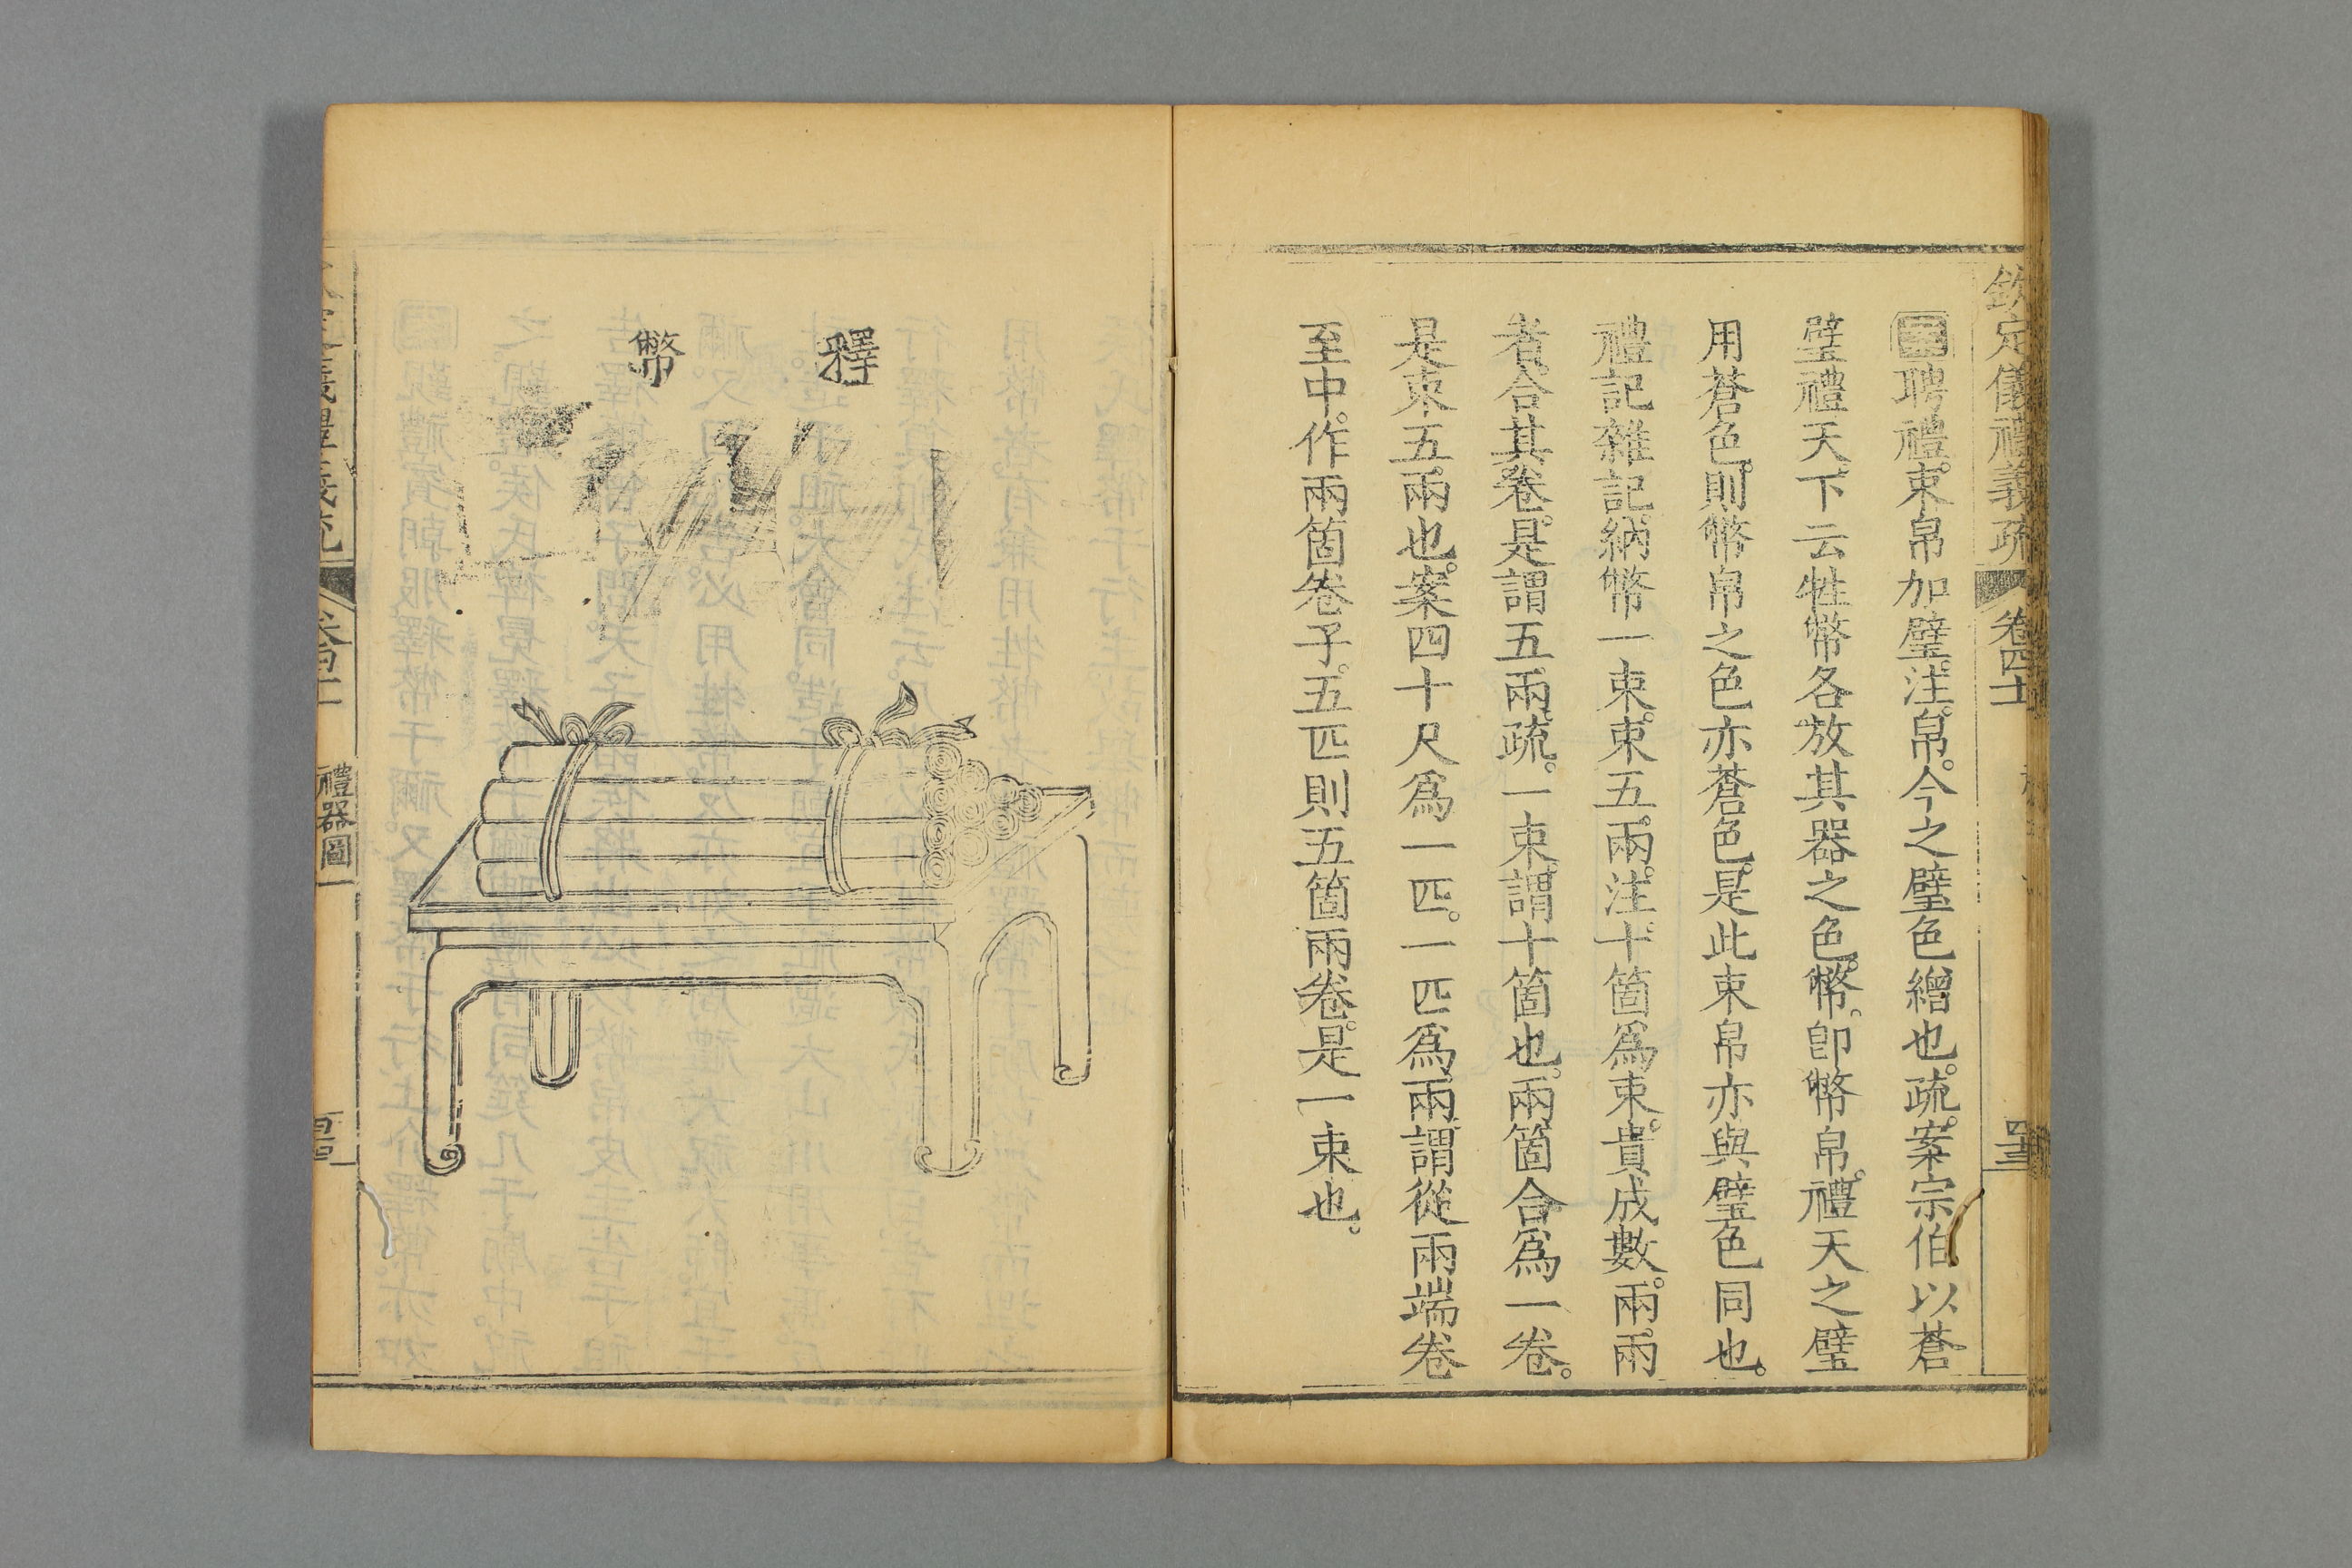 欽定儀禮義疏 卷四十
聘禮。束帛加璧。注。帛。今之璧色繒也。疏。案宗伯以蒼
璧禮天下云牲幣各放其器之色。幣。卽幣帛。禮天之璧
用蒼色。則幣帛之色亦蒼色。是此束帛亦與璧色同也。
禮記雜記。納幣一束。束五兩。注。十箇爲束。貴成數。兩。兩
者。合其卷。是謂五兩。疏。一束。謂十箇也。兩箇合爲一卷。
是束五兩也。案四十尺爲一匹。一匹爲兩。謂從兩端卷
至中。作兩箇卷子。五匹則五箇兩卷。是一束也。
釋幣
禮器圖